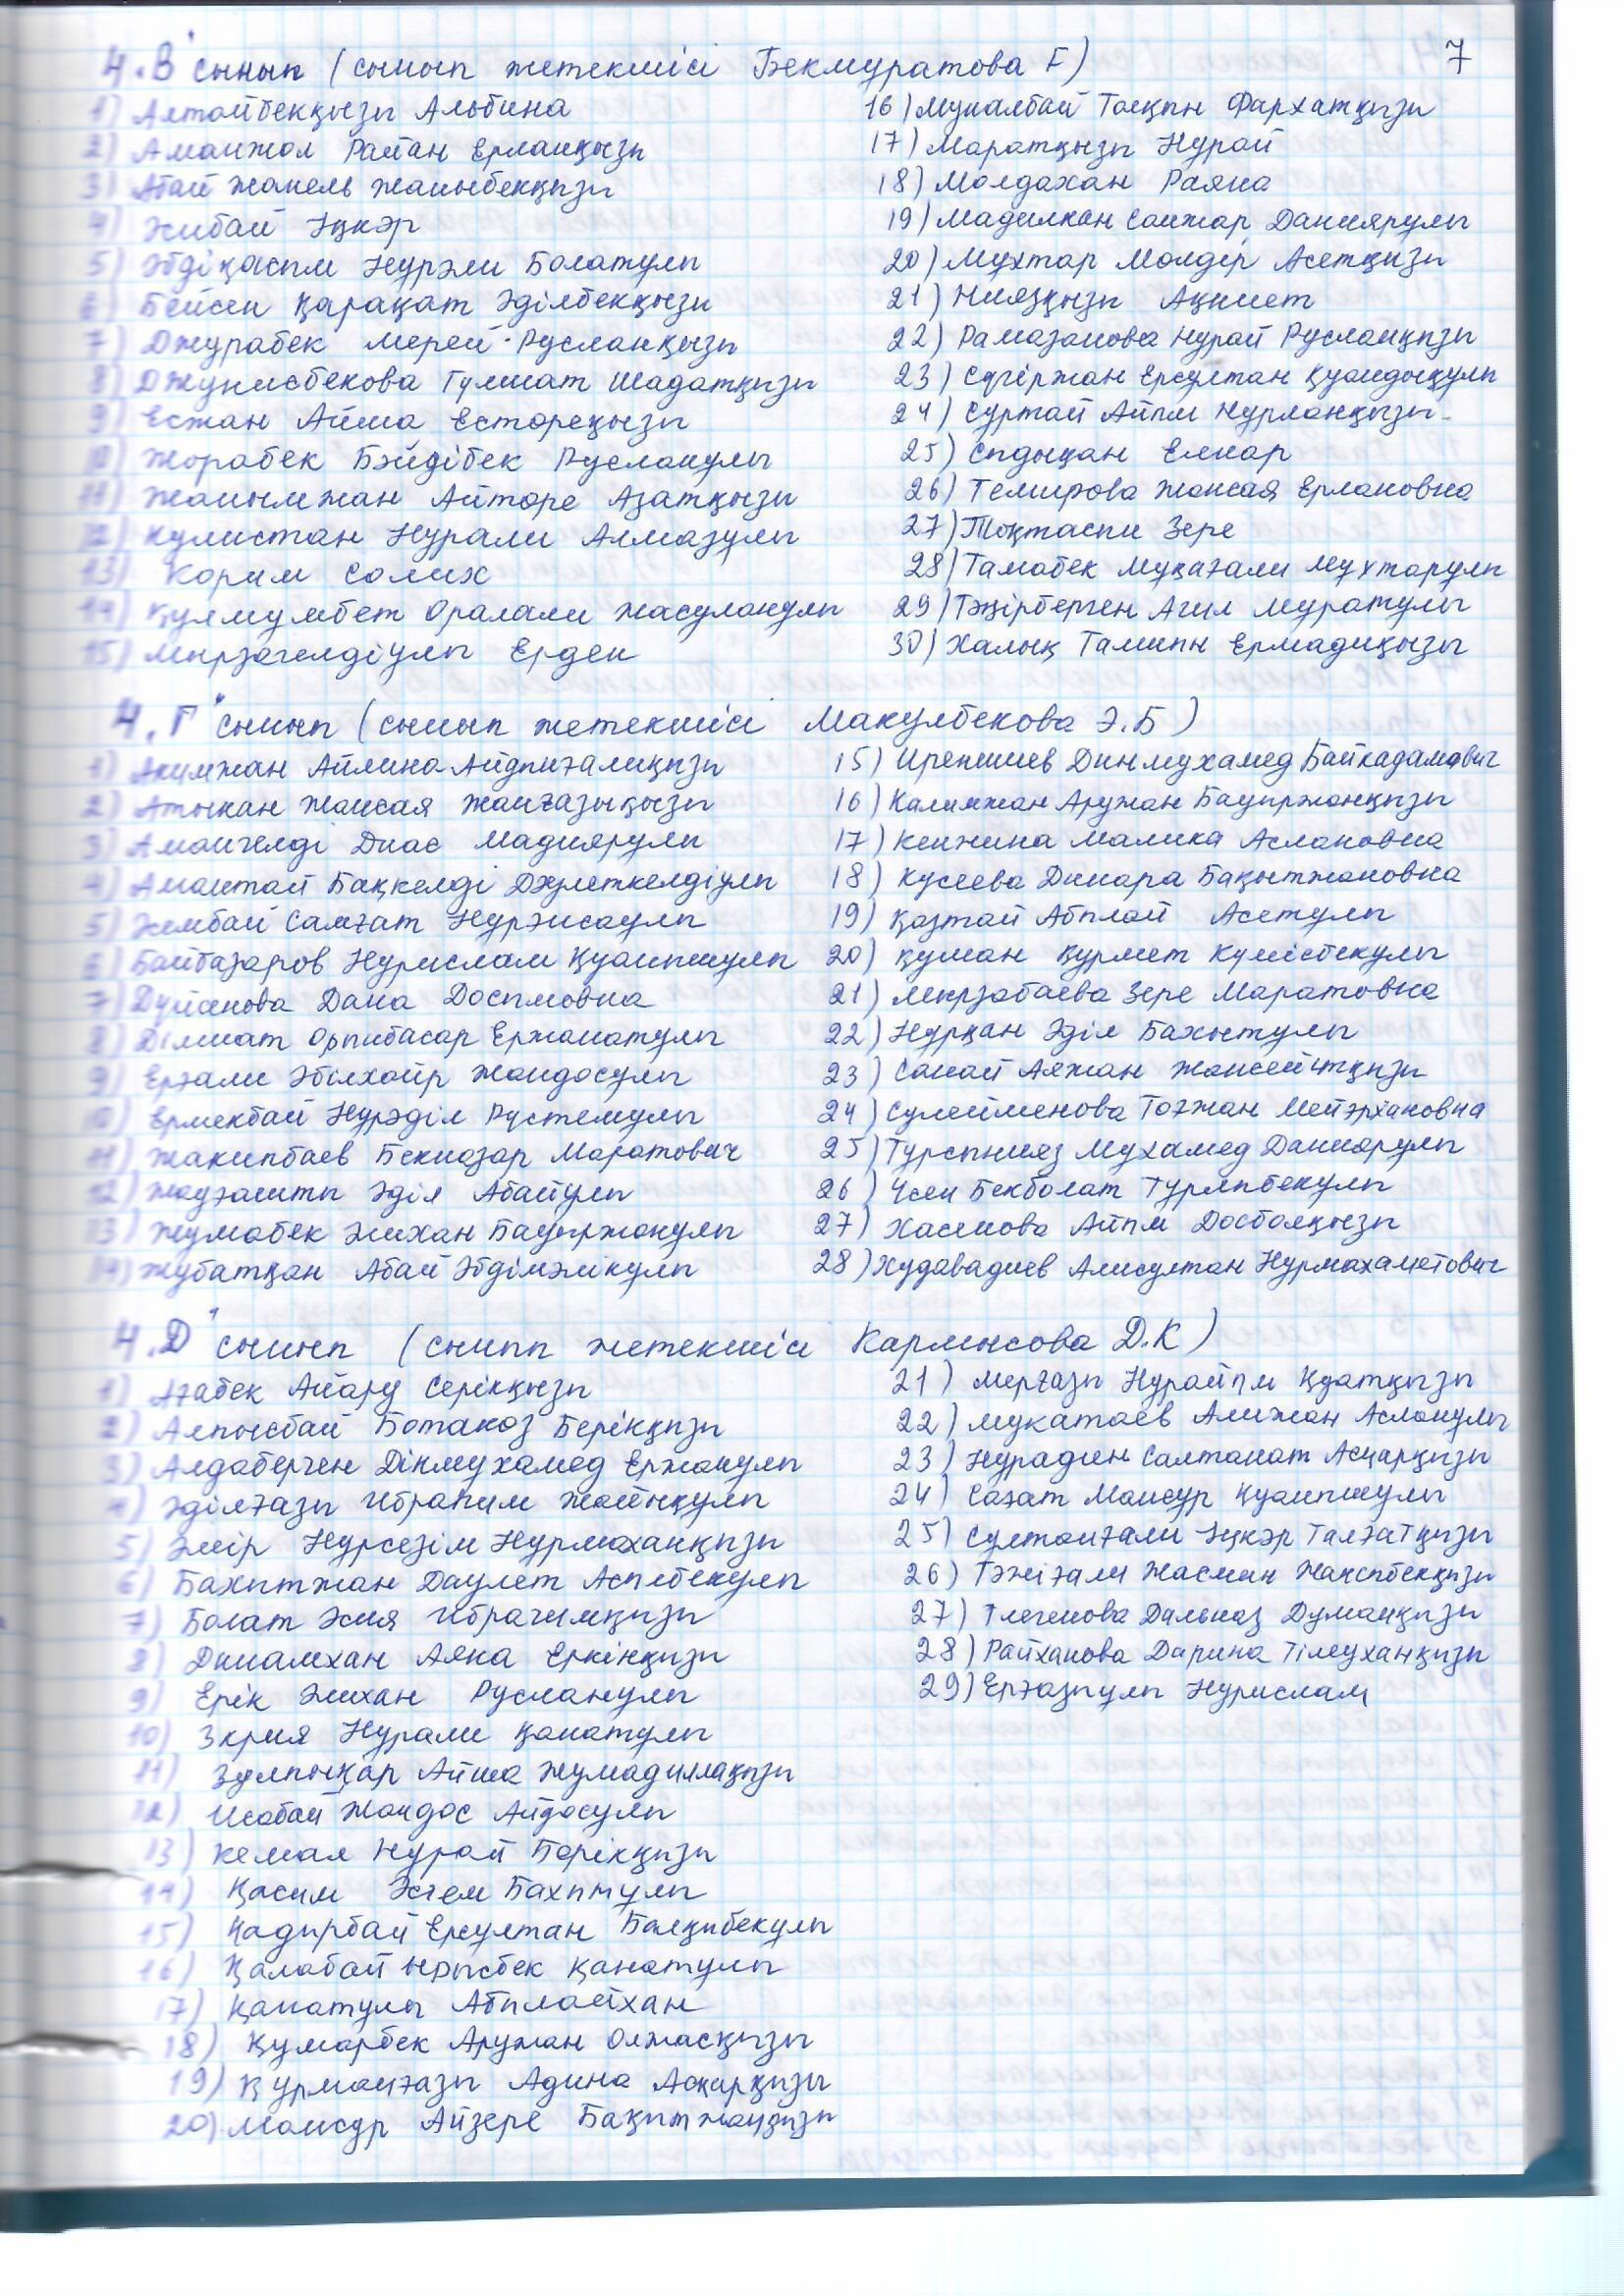 7
4 "В" сынып (сынып жетекшісі Бекмуратова Г)
1) Алтайбекқызы Альбина
2) Аманжол Раян Ерланқызы
3) Абай Жанель Жанибекқызы
4) Әлибай Іңкәр
5) Әбдіқасым Нұрәли Болатұлы
6) Бейсен Қарақат Әділбекқызы
7) Джурабек Мерей Русланқызы
8) Джунисбекова Гулшат Шадатқызы
9) Есжан Айша Естореқызы
10) Жорабек Бәйдібек Русланұлы
11) Жанымжан Айторе Азатқызы
12) Кулистан Нурали Алмазұлы
13) Корим Солих
14) Құлмұмбет Оралали Жасуланұлы
15) Мырзагелдіұлы Ерден
16) Мукалбай Толқын Фархатқызы
17) Маратқызы Нурай
18) Молдахан Раяна
19) Мадилхан Санжар Даниярұлы
20) Мухтар Мөлдір Асетқызы
21) Ниязқызы Ақниет
22) Рамазанова Нурай Русланқызы
23) Серіржан Ерсұлтан Қуандықұлы
24) Суртай Айым Нурланқызы
25) Сыдықан Елнар
26) Темирова Жансая Ерлановна
27) Тоқтасын Зере
28) Тамабек Мұқағали Мухтарұлы
29) Тәңірберген Агил Муратұлы
30) Халық Тамшын Ермадиқызы
4 "Г" сынып (сынып жетекшісі Макулбекова Э.Б)
1) Акимжан Айлина Айдынғалиқызы
2) Атыхан Жансая Жанғазықызы
3) Амангелді Диас Мадиярұлы
4) Амантай Бақкелді Дәулеткелдіұлы
5) Әлембай Самғат Нұрәнсаұлы
6) Байбазаров Нурислам Қуанышұлы
7) Дуйсенова Дана Досымовна
8) Ділшат Орынбасар Ержанатұлы
9) Ерғали Әбілхайр Жандосұлы
10) Ермекбай Нұрәділ Рүстемұлы
11) Жакипбаев Бекназар Маратович
12) Жауғашты Әділ Абайұлы
13) Жумабек Әлихан Бауыржанұлы
14) Жұбатқан Абай Әбдімәлікұлы
15) Иреншиев Динмухамед Байкадамович
16) Калимжан Аружан Бауыржанқызы
17) Кенжина Малика Аслановна
18) Кусеева Динара Бақытжановна
19) Қазтай Абылай Асетұлы
20) Құман Құрмет Күмісбекұлы
21) Мырзабаева Зере Маратовна
22) Нұрқан Әділ Бахытұлы
23) Санай Аяжан Жансейітқызы
24) Сулейменова Тоғжан Мейэрхановна
25) Турсынияз Мухамед Даниарұлы
26) Үсен Бекболат Тұрлыбекұлы
27) Хасенова Айым Досболқызы
28) Худавадиев Алисултан Нурмахаметович
4 "Д" сынып (сынып жетекшісі Кармысова Д.К)
1) Ағабек Айару Серікқызы
2) Алпысбай Ботакоз Берікқызы
3) Алдаберген Дінмухамед Ержанұлы
4) Әділғазы Ибрагим Жайықұлы
5) Әмір Нұрсезім Нурмаханқызы
6) Бахытжан Даулет Асылбекұлы
7) Болат Әсия Ибрагимқызы
8) Динамхан Аяна Еркінқызы
9) Ерік Әлихан Русланұлы
10) Зкрия Нурали Қанатұлы
11) Зұлпықар Айша Жумадиллақызы
12) Исабай Жандос Айдосұлы
13) Кемал Нурай Берікқызы
14) Қасим Әсем Бахытұлы
15) Қадырбай Ерсұлтан Балқыбекұлы
16) Қалабай Ырысбек Қанатұлы
17) Қанатұлы Абылайхан
18) Қумарбек Аружан Олжасқызы
19) Құрманғазы Адина Асқарқызы
20) Мансұр Айзере Бақытжанқызы
21) Мерғазы Нурайым Қуатқызы
22) Мукатаев Алижан Асланұлы
23) Нурадин Салтанат Асқарқызы
24) Сағат Мансур Қуанышұлы
25) Султанғали Іңкәр Талғатқызы
26) Тәжіғали Жасмин Жақсыбекқызы
27) Тлегенова Дильназ Думанқызы
28) Райханова Дарина Тілеуханқызы
29) Ерғазыұлы Нурислам